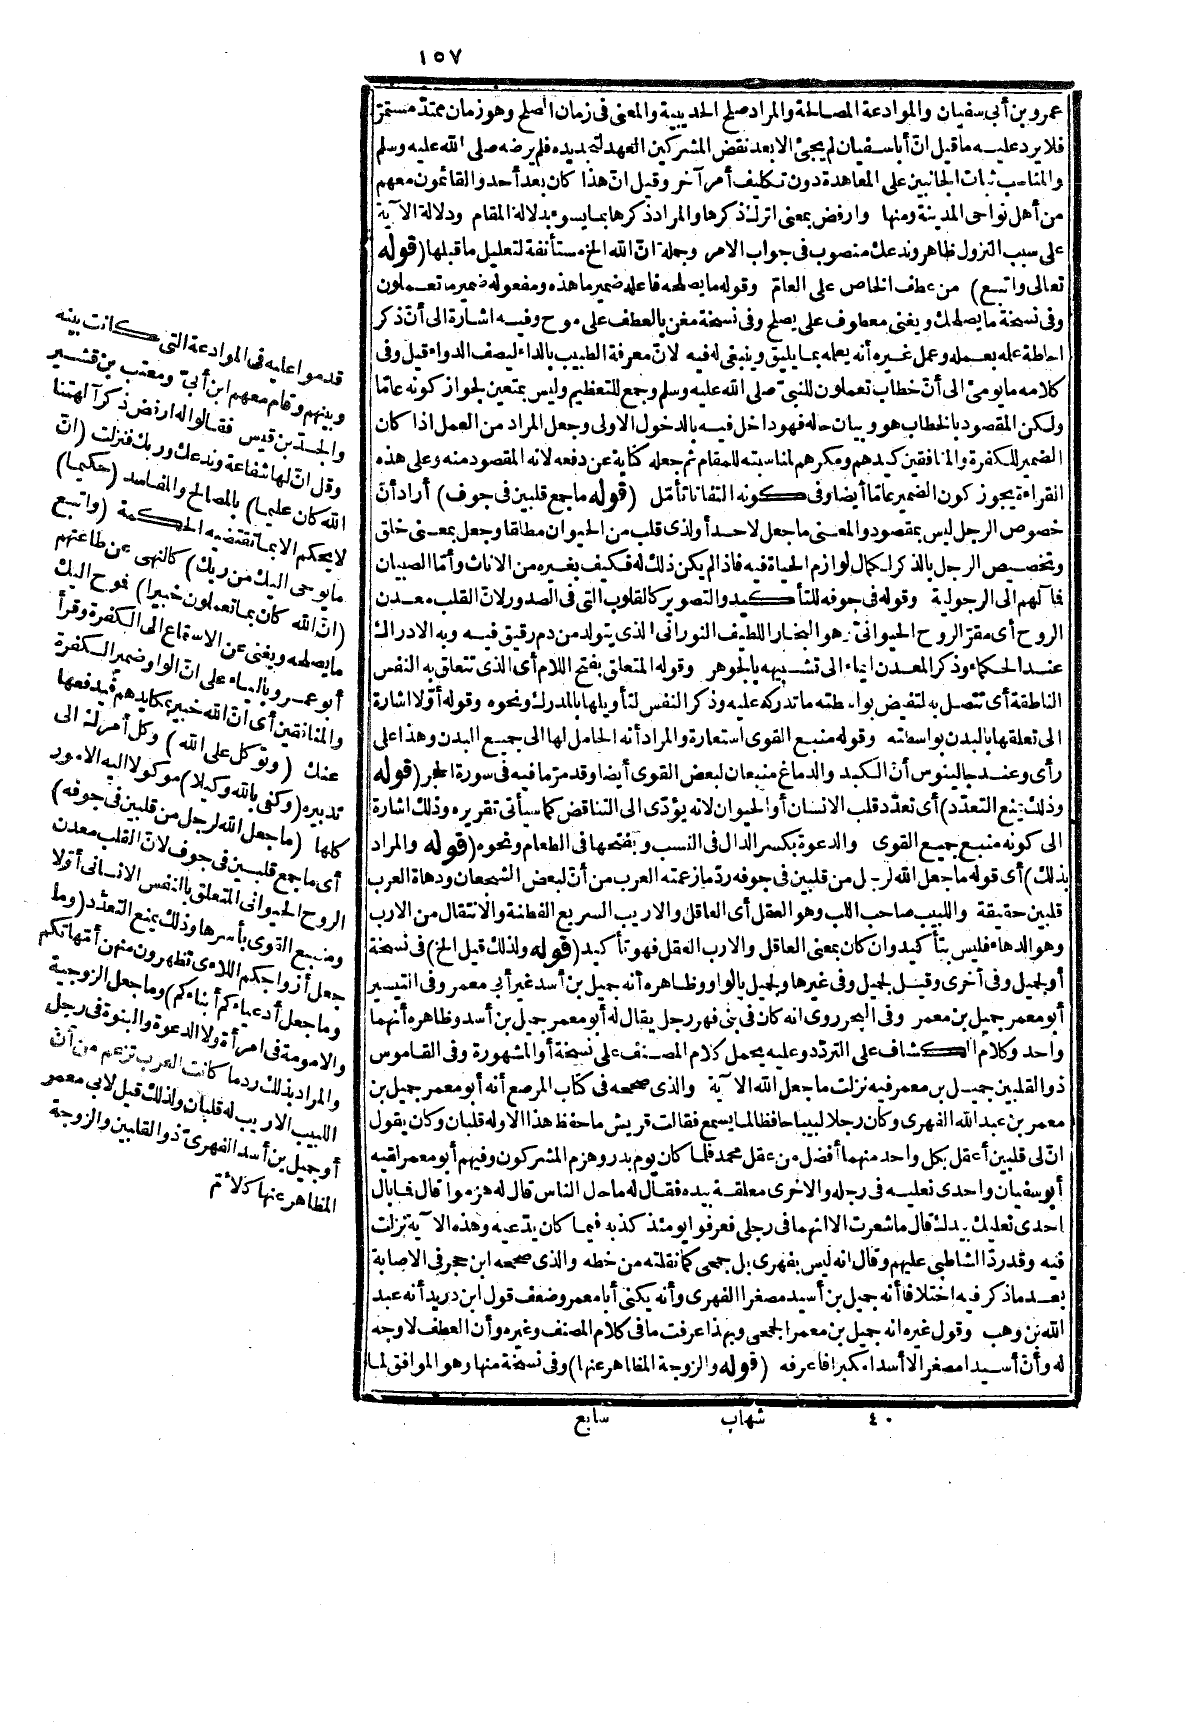 ١٥٧
عمرو بن أبى سفيان والموادعة المصالحة والمراد صلح الحديبية والمعنى فى زمان الصلح وهو زمان ممتد مستمرّ
فلا يرد عليه ما قيل انّ أبا سفيان لم يجئ الا بعد نقض المشركين العهد لتجديده فلم يرضه صلى الله عليه وسلم
والمناسب ثبات الجانبين على المعاهدة دون تكليف أمر آخر وقيل انّ هذا كان بعد أحد والقائمون معهم
من أهل نواحى المدينة ومنها وارفض بمعنى اترك ذكرها والمراد ذكرها بما يسوء بدلالة المقام ودلالة الآية
على سبب النزول ظاهر وندعك منصوب فى جواب الامر وجملة انّ الله الخ مستأنفة لتعليل ما قبلها (قوله
تعالى واتبع) من عطف الخاص على العامّ وقوله ما يصلحه فاعله ضمير ما هذه ومفعوله ضمير ما تعملون
وفى نسخة ما يصلحك ويغنى معطوف على يصلح وفى نسخة مغن بالعطف على موح وفيه اشارة الى أنّ ذكر
احاطة علمه بعمله وعمل غيره أنه يعلمه بما يليق وينبغى له فيه لانّ معرفة الطبيب بالداء ليصف الدواء قيل وفى
كلامه ما يومئ الى أنّ خطاب تعملون للنبىّ صلى الله عليه وسلم وجمع للتعظيم وليس بمتعين لجواز كونه عامّا
ولكن المقصود بالخطاب هو وبيان حاله فهو داخل فيه بالدخول الاولى وجعل المراد من العمل اذا كان
الضمير للكفرة والمنافقين كيدهم ومكرهم لمناسبته للمقام ثم جعله كناية عن دفعه لانه المقصود منه وعلى هذه
القراءة يجوز كون الضمير عامّا أيضا وفى كونه التفاتا تأمّل (قوله ما جمع قلبين فى جوف) أراد أنّ
خصوص الرجل ليس بمقصود والمعنى ما جعل لاحد أو لذى قلب من الحيوان مطلقا وجعل بمعنى خلق
وتخصيص الرجل بالذكر لكمال لوازم الحياة فيه فاذا لم يكن ذلك له فكيف بغيره من الاناث وأمّا الصبيان
فمآلهم الى الرجولية وقوله فى جوفه للتأكيد والتصوير كالقلوب التى فى الصدور لانّ القلب معدن
الروح أى مقرّ الروح الحيوانىّ هو البخار اللطيف النورانى الذى يتولد من دم رقيق فيه وبه الادراك
عند الحكماء وذكر المعدن ايماء الى تشبيهه بالجوهر وقوله المتعلق بفتح اللام أى الذى تتعلق به النفس
الناطقة أى تتصل به لتفيض بواسطته ما تدركه عليه وذكر النفس لتأويلها بالمدرك ونحوه وقوله أوّلا اشارة
الى تعلقها بالبدن بواسطته وقوله منبع القوى استعارة والمراد أنه الحامل لها الى جميع البدن وهذا على
رأى وعند جالينوس أنّ الكبد والدماغ منبعان لبعض القوى أيضا وقد مرّ ما فيه فى سورة الحجر (قوله
وذلك يمنع التعدّد) أى تعدّد قلب الانسان أو الحيوان لانه يؤدّى الى التناقض كما سيأتى تقريره وذلك اشارة
الى كونه منبع جميع القوى والدعوة بكسر الدال فى النسب وبفتحها فى الطعام ونحوه (قوله والمراد
بذلك) أى قوله ما جعل الله لرجل من قلبين فى جوفه ردّ ما زعمته العرب من أنّ لبعض الشجعان ودهاة العرب
قلبين حقيقة واللبيب صاحب اللب وهو العقل أى العاقل والاريب السريع الفطنة والانتقال من الارب
وهو الدهاء فليس بتأكيد وان كان بمعنى العاقل والارب العقل فهو تأكيد (قوله ولذلك قيل الخ) فى نسخة
أو لجميل وفى أخرى وقيل لجميل وفى غيرها ولجميل بالواو وظاهره أنه جميل بن أسد غير أبى معمر وفى التيسير
أبو معمر جميل بن معمر وفى البحر روى انه كان فى بنى فهر رجل يقال له أبو معمر جميل بن أسد وظاهره أنهما
واحد وكلام الكشاف على التردّد وعليه يحمل كلام المصنف على نسخة أو المشهورة وفى القاموس
ذو القلبين جميل بن معمر فيه نزلت ما جعل الله الآية والذى صححه فى كتاب المرصع أنه أبو معمر جميل بن
معمر بن عبد الله الفهرى وكان رجلا لبيبا حافظا لما يسمع فقالت قريش ما حفظ هذا الا وله قلبان وكان يقول
انّ لى قلبين أعقل بكل واحد منهما أفضل من عقل محمد فلما كان يوم بدر وهزم المشركون وفيهم أبو معمر لقيه
أبو سفيان واحدى نعليه فى رجله والاخرى معلقة بيده فقال له ما حال الناس قال له هزموا قال فما بال
احدى نعليك بيدك قال ما شعرت الا انهما فى رجلى فعرفوا يومئذ كذبه فيما كان يدّعيه وهذه الآية نزلت
فيه وقد ردّ الشاطبى عليهم وقال انه ليس بفهرى بل جمحى كما نقلته من خطه والذى صححه ابن حجر فى الاصابة
بعد ما ذكر فيه اختلافا أنه جميل بن أسيد مصغرا الفهرى وأنه يكنى أبا معمر وضعف قول ابن دريد أنه عبد
الله بن وهب وقول غيره انه جميل بن معمر الجمحى وبهذا عرفت ما فى كلام المصنف وغيره وأن العطف لا وجه
له وأنّ أسيدا مصغر لا أسدا مكبرا فاعرفه (قوله والزوجة المظاهر عنها) وفى نسخة منها وهو الموافق لما
٤٠ شهاب سابع
قدموا عليه فى الموادعة التى كانت بينه
وبينهم وقام معهم ابن أبىّ ومعتب بن قشير
والجدّ بن قيس فقالوا له ارفض ذكر آلهتنا
وقل انّ لها شفاعة وندعك وربك فنزلت (انّ
الله كان عليما) بالمصالح والمفاسد (حكيما)
لا يحكم الا بما تقتضيه الحكمة (واتبع
ما يوحى اليك من ربك) كالنهى عن طاعتهم
(انّ الله كان بما تعملون خبيرا) فموح اليك
ما يصلحه ويغنى عن الاستماع الى الكفرة وقرأ
أبو عمرو بالياء على انّ الواو ضمير الكفرة
والمنافقين أى انّ الله خبير بمكايدهم فيدفعها
عنك (وتوكل على الله) وكل أمرك الى
تدبيره (وكفى بالله وكيلا) موكولا اليه الامور
كلها (ما جعل الله لرجل من قلبين فى جوفه)
أى ما جمع قلبين فى جوف لانّ القلب معدن
الروح الحيوانى المتعلق بالنفس الانسانى أوّلا
ومنبع القوى بأسرها وذلك يمنع التعدّد (وما
جعل أزواجكم اللاءى تظهرون منهن أمّهاتكم
وما جعل أدعياءكم أبناءكم) وما جعل الزوجية
والامومة فى امرأة ولا الدعوة والبنوة فى رجل
والمراد بذلك ردّ ما كانت العرب تزعم من أنّ
اللبيب الاريب له قلبان ولذلك قيل لابى معمر
أو جميل بن أسد الفهرىّ ذو القلبين والزوجة
المظاهر عنها كالامّ